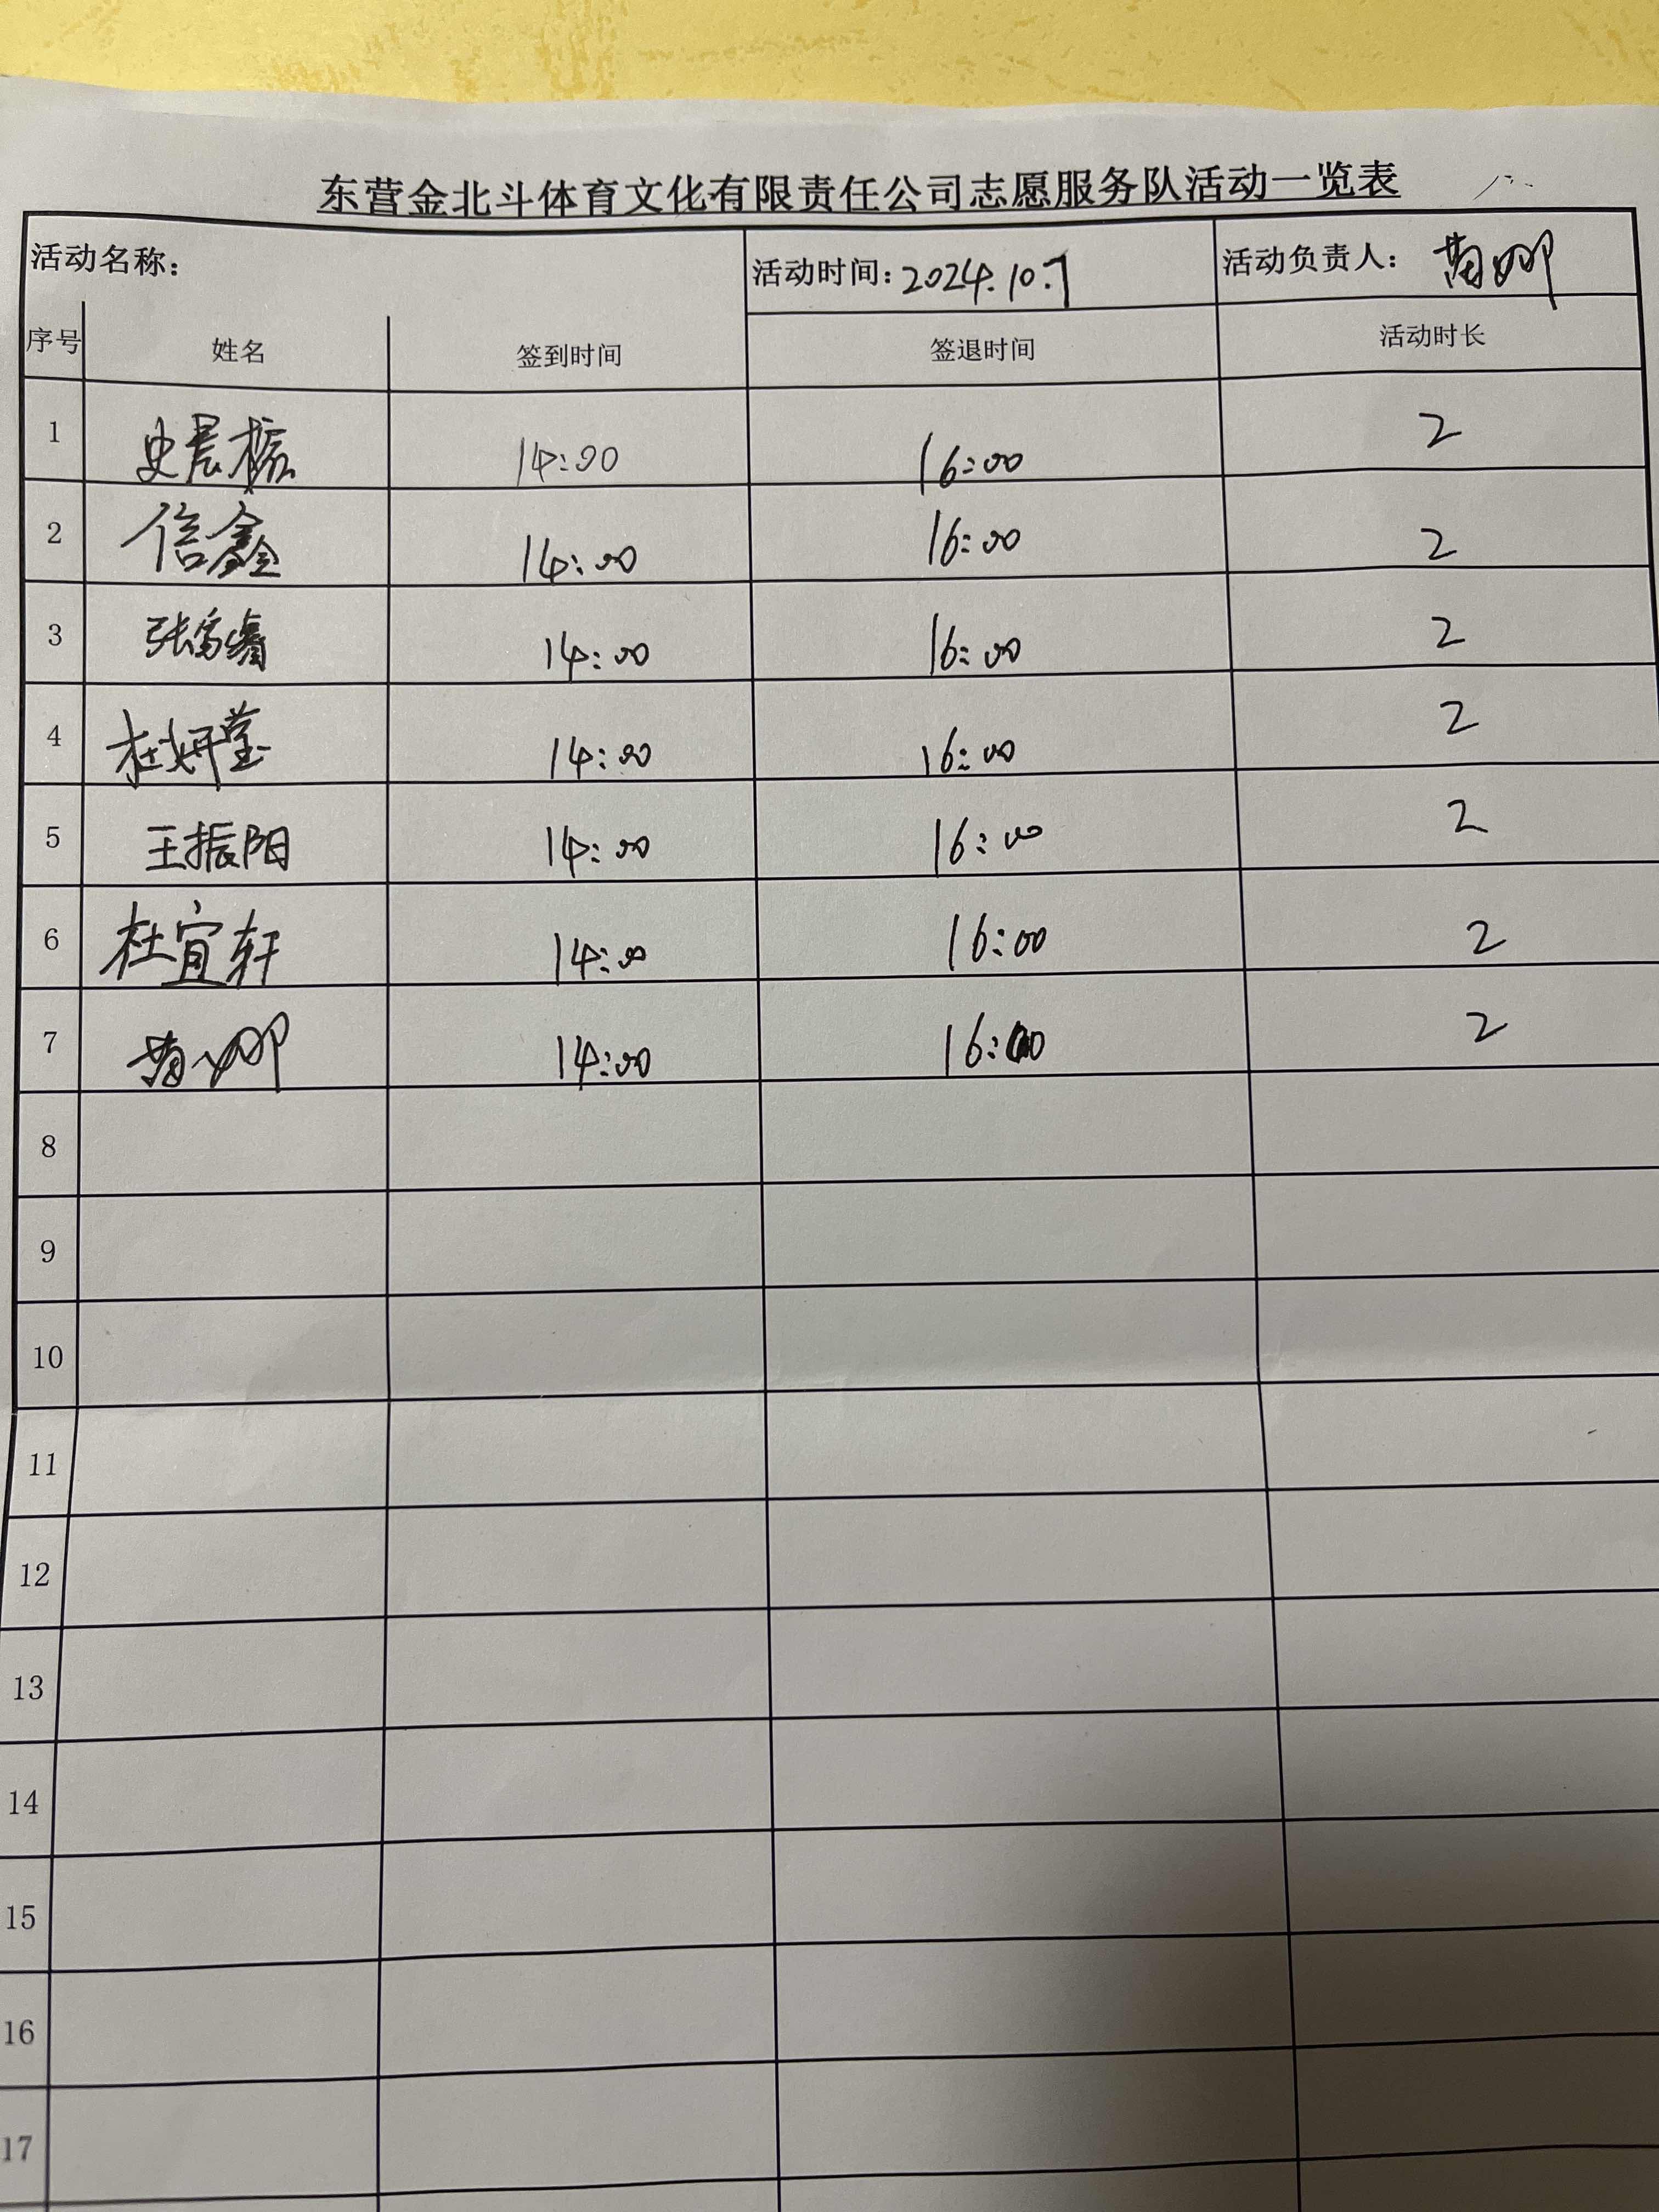 东营金北斗体育文化有限责任公司志愿服务队活动一览表
活动名称： 活动时间：2024.10.7 活动负责人：黄娜
序号 姓名 签到时间 签退时间 活动时长
1 史晨振 14:00 16:00 2
2 信鑫 14:00 16:00 2
3 张富睿 14:00 16:00 2
4 杜妍莹 14:00 16:00 2
5 王振阳 14:00 16:00 2
6 杜宜轩 14:00 16:00 2
7 黄娜 14:00 16:00 2
8
9
10
11
12
13
14
15
16
17